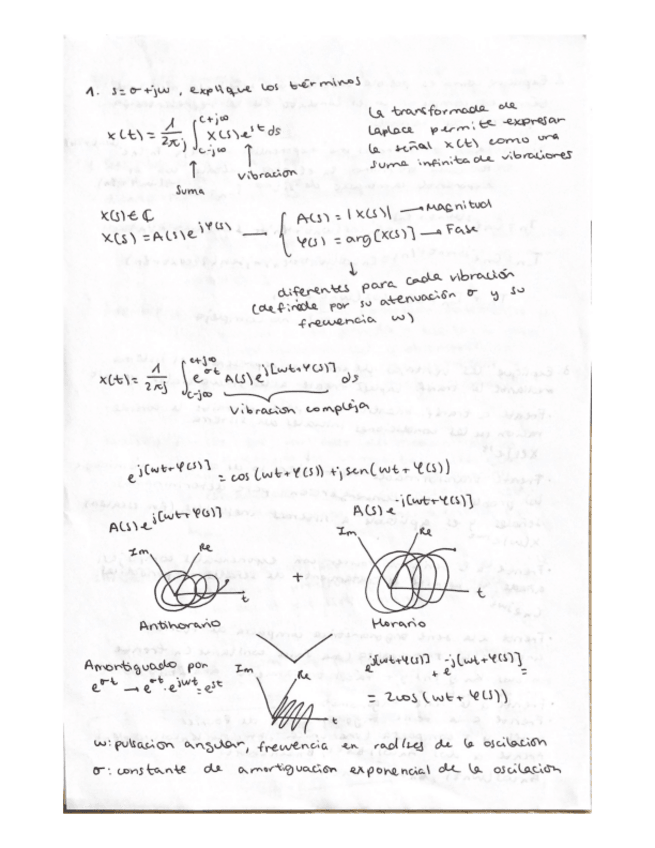 1. s=σ+jω, explique los términos
x(t) = 1/2πj ∫_{c-j∞}^{c+j∞} X(s)e^{st} ds
↑ Suma
↑ vibración
La transformada de
Laplace permite expresar
la señal x(t) como una
suma infinita de vibraciones
X(s)∈ℂ
X(s) = A(s)e^{jφ(s)} → { A(s) = |X(s)| → Magnitud
φ(s) = arg[X(s)] → Fase
↓
diferentes para cada vibración
(definida por su atenuación σ y su
frecuencia ω)
x(t) = 1/2πj ∫_{c-j∞}^{c+j∞} e^{σt} A(s)e^{j[ωt+φ(s)]} ds
vibración compleja
e^{j[ωt+φ(s)]} = cos(ωt+φ(s)) + j sen(ωt+φ(s))
A(s)e^{j[ωt+φ(s)]}
A(s)e^{-j[ωt+φ(s)]}
Im Re t
+
Im Re t
Antihorario
Horario
Amortiguado por
e^{σt} → e^{σt}·e^{jωt}=e^{st}
Im Re t
e^{j[ωt+φ(s)]} + e^{-j[ωt+φ(s)]} =
= 2cos(ωt+φ(s))
ω: pulsación angular, frecuencia en rad/seg de la oscilación
σ: constante de amortiguación exponencial de la oscilación